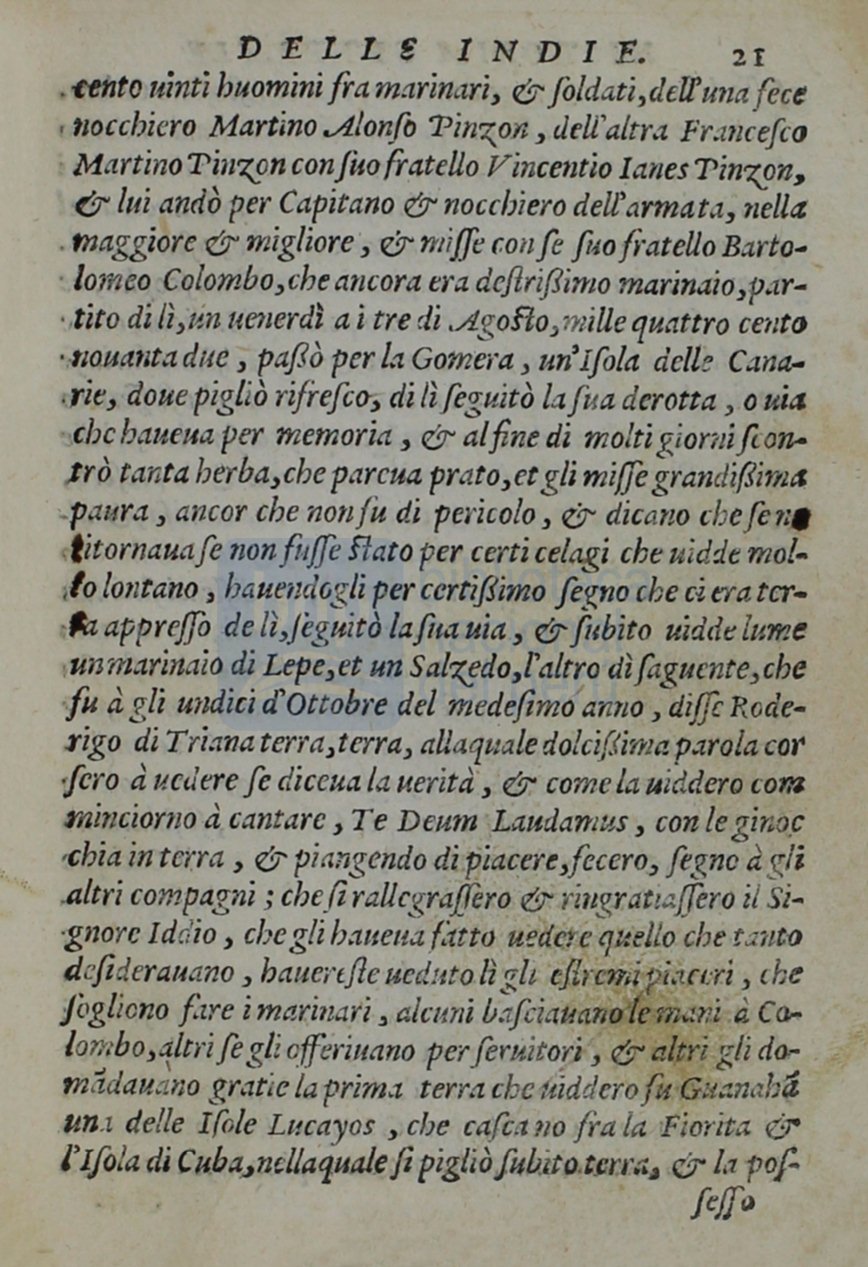 DELLE INDIE. 21
cento uinti huomini fra marinari, & ſoldati, dell'una fece
nocchiero Martino Alonſo Pinzon, dell'altra Franceſco
Martino Pinzon con ſuo fratello Vincentio Ianes Pinzon,
& lui andò per Capitano & nocchiero dell'armata, nella
maggiore & migliore, & miſſe con ſe ſuo fratello Barto-
lomeo Colombo, che ancora era deſtriſſimo marinaio, par-
tito di lì, un uenerdì a i tre di Agoſto, mille quattro cento
nouanta due, paſſò per la Gomera, un'Iſola delle Cana-
rie, doue pigliò rifreſco, di lì ſeguitò la ſua derotta, o uia
che haueua per memoria, & al fine di molti giorni ſcon-
trò tanta herba, che pareua prato, et gli miſſe grandiſſima
paura, ancor che non fu di pericolo, & dicano che ſe ne
ritornaua ſe non fuſſe ſtato per certi celagi che uidde mol-
to lontano, hauendogli per certiſſimo ſegno che ci era ter-
ra appreſſo de lì, ſeguitò la ſua uia, & ſubito uidde lume
un marinaio di Lepe, et un Salzedo, l'altro dì ſaguente, che
fu à gli undici d'Ottobre del medeſimo anno, diſſe Rode-
rigo di Triana terra, terra, alla quale dolciſſima parola cor
ſero à uedere ſe diceua la uerità, & come la uiddero com
minciorno à cantare, Te Deum Laudamus, con le ginoc
chia in terra, & piangendo di piacere, fecero, ſegno à gli
altri compagni; che ſi rallegraſſero & ringratiaſſero il Si-
gnore Iddio, che gli haueua fatto uedere quello che tanto
deſiderauano, hauereſte ueduto lì gli eſtremi piaceri, che
ſogliono fare i marinari, alcuni baſciauano le mani à Co-
lombo, altri ſe gli offeriuano per ſeruitori, & altri gli do-
mādauano gratie la prima terra che uiddero fu Guanahā
una delle Iſole Lucayos, che caſcano fra la Fiorita &
l'Iſola di Cuba, nella quale ſi pigliò ſubito terra, & la poſ-
ſeſſo